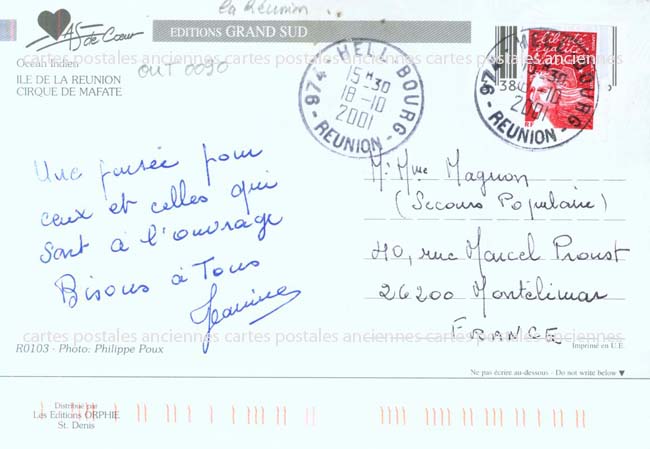 la Réunion
As de Cœur
EDITIONS GRAND SUD
Océan Indien
ILE DE LA REUNION
CIRQUE DE MAFATE
OUT 0090
974 HELL-BOURG
15 H 30
18-10
2001
- REUNION -
974
BOURG
18-10
2001
- REUNION -
Liberté
Egalité
RF
Une pensée pour
ceux et celles qui
sont à l'ouvrage
Bisous à Tous
Jeannine
M. Mme Magnon
(Secours Populaire)
40, rue Marcel Proust
26200 Montélimar
FRANCE
cartes postales anciennes cartes postales anciennes cartes postales anciennes
cartes postales anciennes cartes postales anciennes cartes postales anciennes
R0103 - Photo: Philippe Poux
Imprimé en U.E.
Ne pas écrire au-dessous - Do not write below ▼
Distribué par
Les Editions ORPHIE
St. Denis